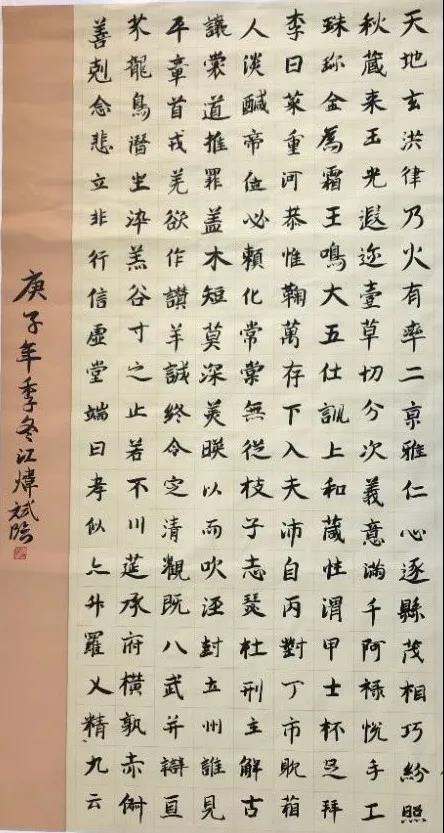 天地玄洪律乃火有率二京雅仁心逐縣茂相巧紛照
秋藏來玉光遐迩壹草切分次義意滿千阿祿悅手工
珠珎金為霜王鳴大五仕訓上和葴性渭甲士杯足拜
李曰菜重河恭惟鞠萬存下入夫沛自丙對丁市耽葙
人淡鹹帝位必賴化常棠無從枝子志瑟杜刑主解古
讓裳道推罪蓋木短莫深美暎以而吹涇封五州誰見
平章首戎羌欲作讚羊誠終令定清觀既八武并辯亘
芥龍鳥潛坐染羔谷寸之止若不川莚承府橫孰赤俯
善剋念悲立非行信虛堂端曰孝似升羅乂精九云
庚子年季冬江煒斌臨